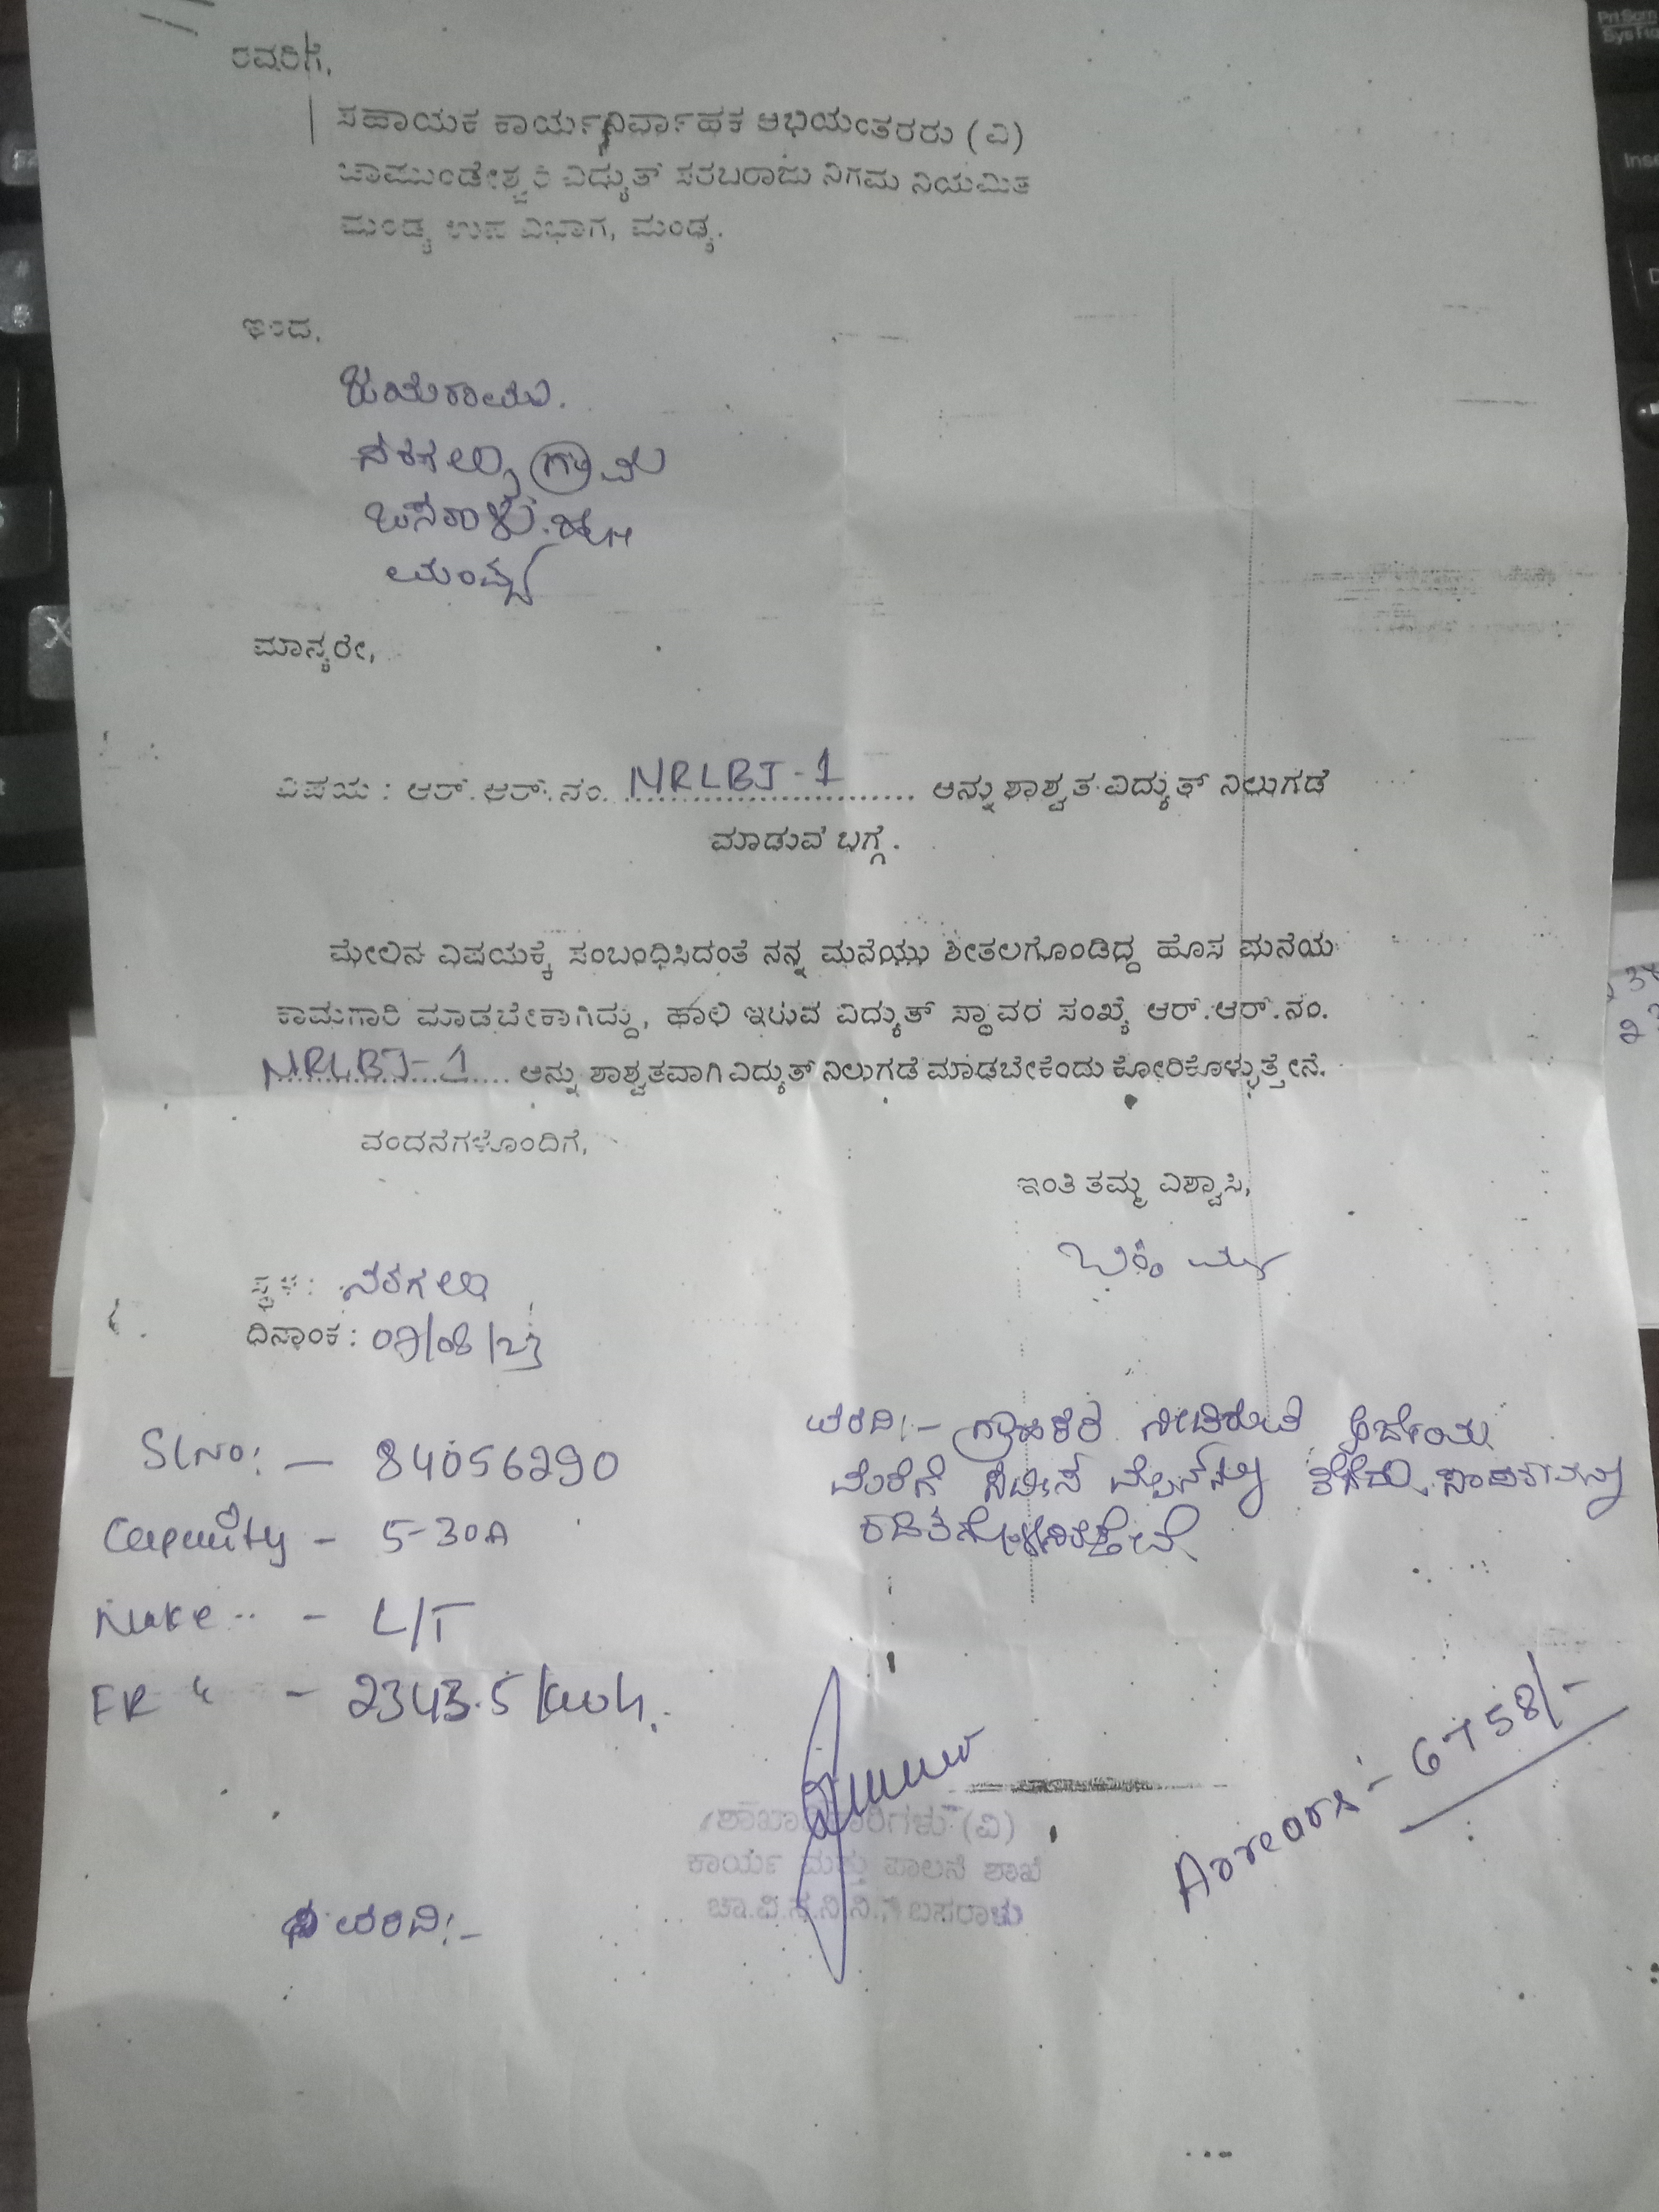 ರವರಿಗೆ,
ಸಹಾಯಕ ಕಾರ್ಯನಿರ್ವಾಹಕ ಅಭಿಯಂತರರು (ವಿ)
ಚಾಮುಂಡೇಶ್ವರಿ ವಿದ್ಯುತ್ ಸರಬರಾಜು ನಿಗಮ ನಿಯಮಿತ
ಮಂಡ್ಯ ಉಪ ವಿಭಾಗ, ಮಂಡ್ಯ.
ಇಂದ,
ಜಯರಾಮು.
ನರಗಲು ಗ್ರಾಮ
ಬಸರಾಳು.
ಮಂಡ್ಯ
ಮಾನ್ಯರೇ,
ವಿಷಯ : ಆರ್.ಆರ್.ನಂ. NRLBJ-1 ಅನ್ನು ಶಾಶ್ವತ ವಿದ್ಯುತ್ ನಿಲುಗಡೆ
ಮಾಡುವ ಬಗ್ಗೆ.
ಮೇಲಿನ ವಿಷಯಕ್ಕೆ ಸಂಬಂಧಿಸಿದಂತೆ ನನ್ನ ಮನೆಯು ಶೀತಲಗೊಂಡಿದ್ದ ಹೊಸ ಮನೆಯ
ಕಾಮಗಾರಿ ಮಾಡಬೇಕಾಗಿದ್ದು, ಹಾಲಿ ಇರುವ ವಿದ್ಯುತ್ ಸ್ಥಾವರ ಸಂಖ್ಯೆ ಆರ್.ಆರ್.ನಂ.
NRLBJ-1 ಅನ್ನು ಶಾಶ್ವತವಾಗಿ ವಿದ್ಯುತ್ ನಿಲುಗಡೆ ಮಾಡಬೇಕೆಂದು ಕೋರಿಕೊಳ್ಳುತ್ತೇನೆ.
ವಂದನೆಗಳೊಂದಿಗೆ,
ಇಂತಿ ತಮ್ಮ ವಿಶ್ವಾಸಿ,
ಸ್ಥಳ: ನರಗಲು
ದಿನಾಂಕ: 07/08/23
ವರದಿ:- ಗ್ರಾಹಕರ ನೀಡಿರುವ ಅರ್ಜಿಯ
ಮೇರೆಗೆ
SlNo: - 84056290
Capacity - 5-30A
Make - L/T
FR " - 2343.5 kwh.
Arrears:- 6758/-
ಶಾಖಾಧಿಕಾರಿಗಳು (ವಿ)
ಕಾರ್ಯ ಮತ್ತು ಪಾಲನೆ ಶಾಖೆ
ಚಾ.ವಿ.ಸ.ನಿ.ನಿ. ಬಸರಾಳು
ವರದಿ:-